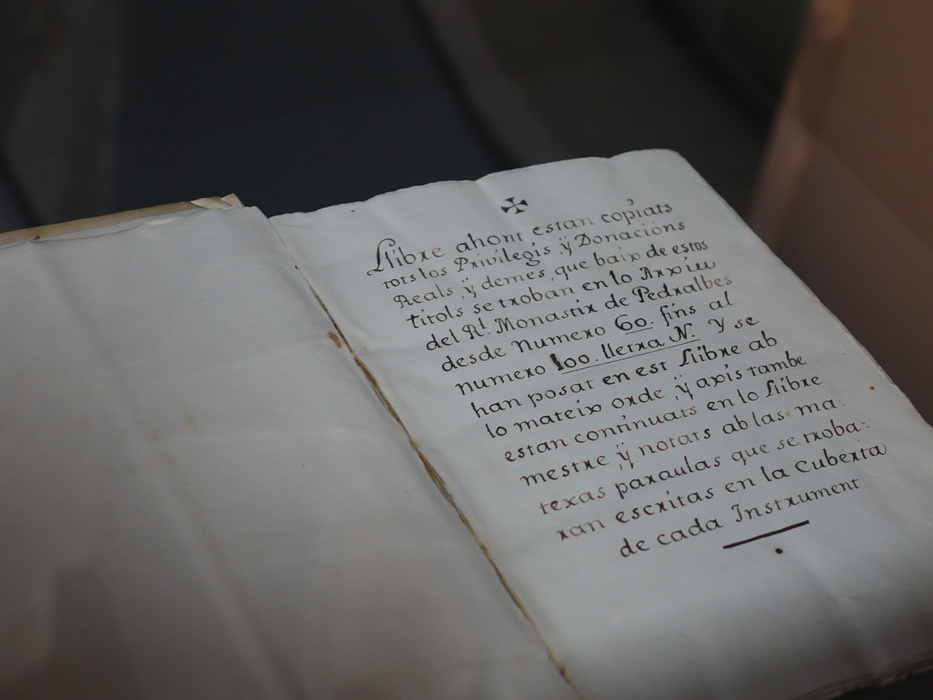 ✠
Llibre ahont estan copiats
tots los Privilegis ÿ Donacións
Reals ÿ demes que baix de estos
titols se troban en lo Arxiu
del Rl. Monastir de Pedralbes
desde Numero 60 fins al
numero 100. lletra N. Y se
han posat en est Llibre ab
lo mateix orde ÿ axis tambe
estan continuats en lo Llibre
mestre ÿ notats ab las ma:
texas paraulas que se troba:
ran escritas en la Cuberta
de cada Instrument